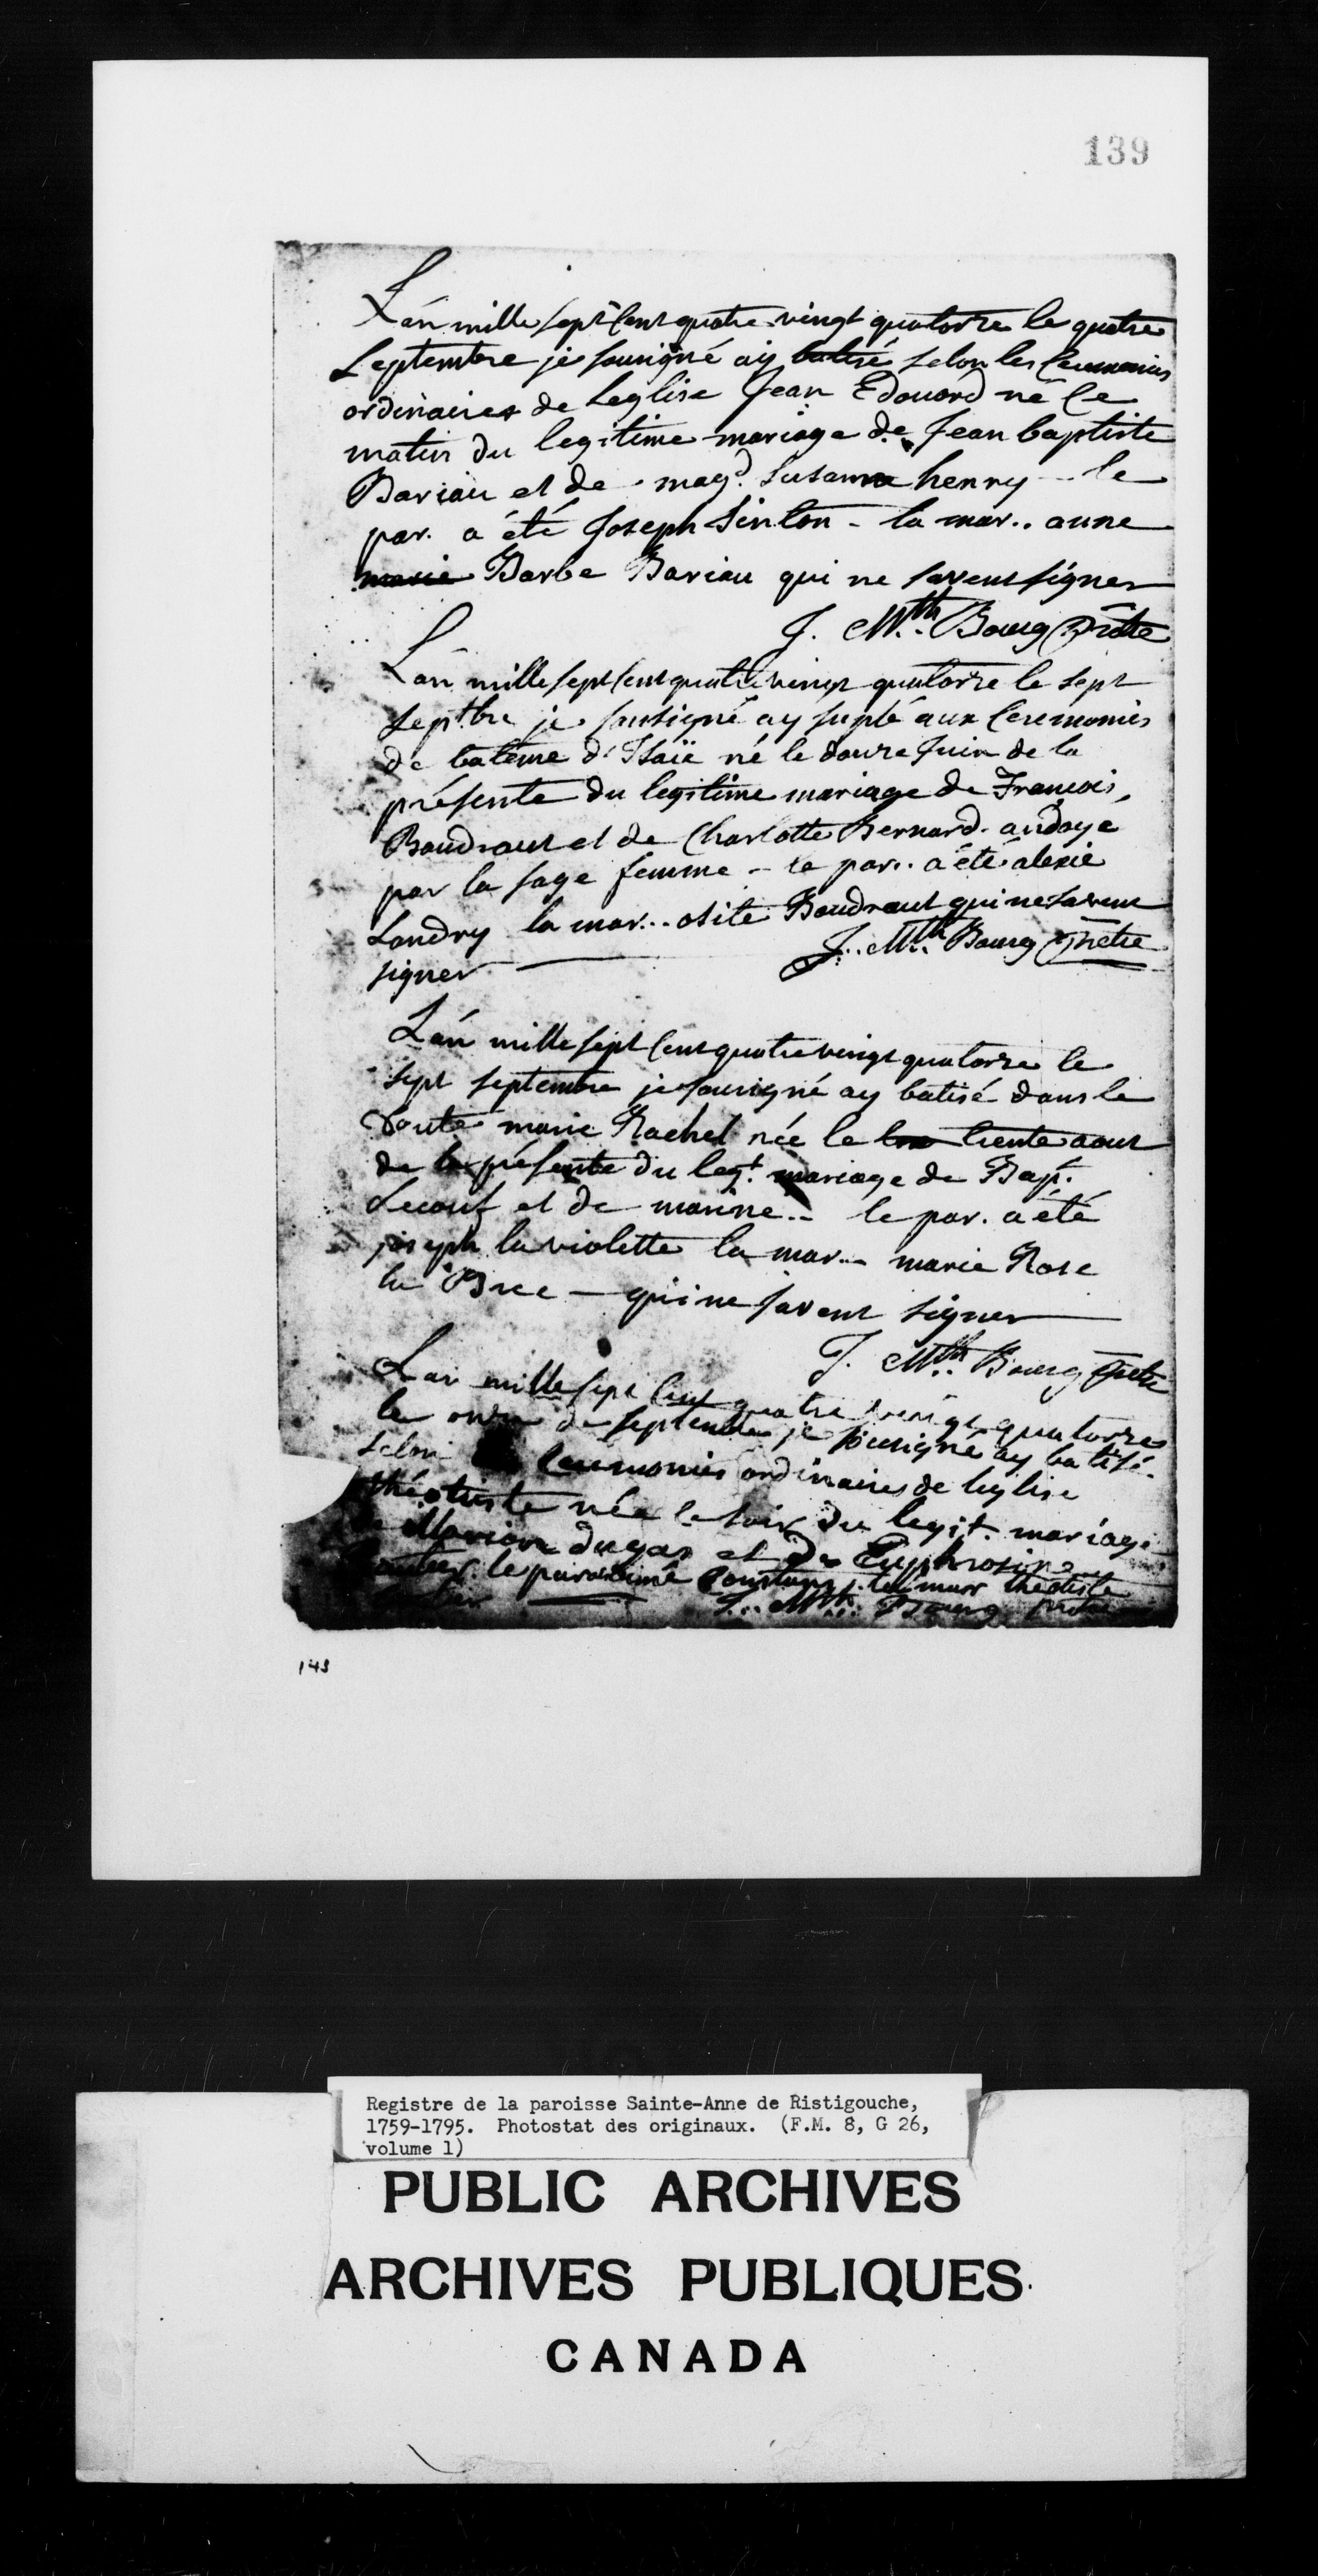 139
L'án mille sept Cent quatre vingt quatorze le quatre
Septembre je sousigné ay batisé selon les Ceremonies
ordinaires de Leglise Jean Edouard né ce
matin du legitime mariage de Jean baptiste
Bariau et de magd. Susanne henry - le
par. a été Joseph Sinlton - la mar.. anne
marie Barbe Bariau qui ne savent signer
J. Mth. Bourg prêtre
L'an mille sept Cent quatre vingt quatorze le sept
Septbre je sousigné ay suplé aux Ceremonies
de batême d'Isaïe né le douze Juin de la
présente du legitime mariage de François
Boudraut et de Charlotte Bernard. andoye
par la sage femme - le par.. a été alexie
Landry la mar... osite Boudraut qui ne savent
signer
J.. Mth. Bourg prêtre
L'án mille sept Cent quatre vingt quatorze le
sept septembre je sousigné ay batisé dans le
Doute marie Rachel née le trente aout
de la présente du legt. mariage de Bapt.
Lecouf et de marine.. le par. a été
joseph la violette la mar... marie Rose
la Bree - qui ne savent signer
J. Mth. Bourg prêtre
L'an mille sept Cent quatre vingt quatorze
le onze de septembre je sousigné ay batisé
selon Ceremonies ordinaires de leglise
théotiste née ce soir du legit. mariage
de Marion dugas et de Euphrosine
le par. a été Constans. la mar théotiste
J... Mth. Bourg prêtre
143
Registre de la paroisse Sainte-Anne de Ristigouche,
1759-1795. Photostat des originaux. (F.M. 8, G 26,
volume 1)
PUBLIC ARCHIVES
ARCHIVES PUBLIQUES
CANADA